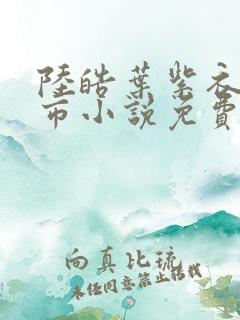 陸皓葉紫衣
市小說免費
向真比琉
未任同意禁止轉載